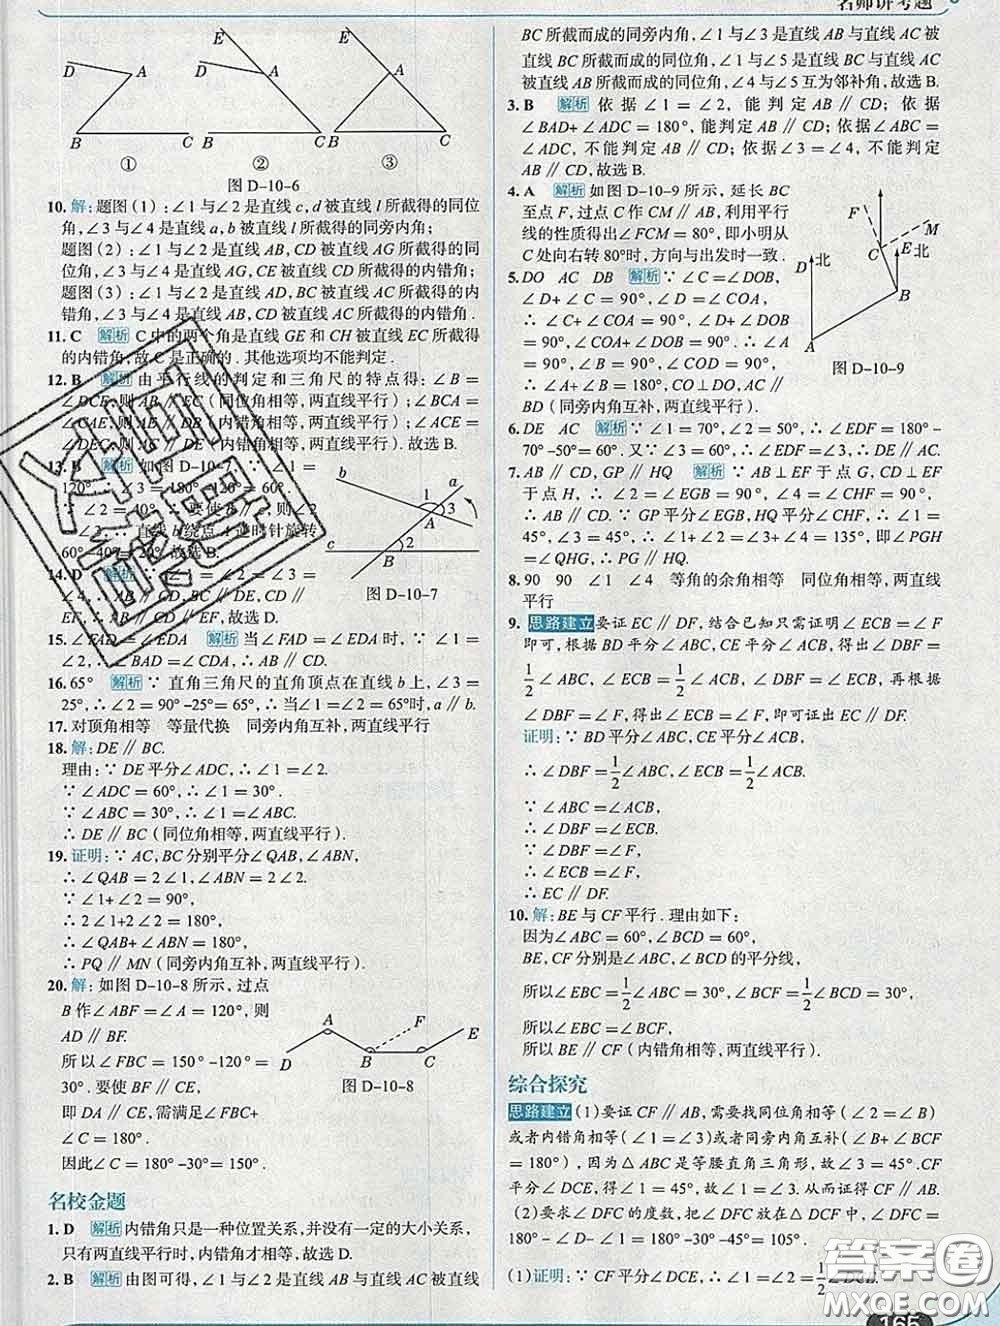 名师讲考题
E
D
A
B
C
①
E
D
A
B
C
②
E
D
A
B
C
③
图 D-10-6
10. 解:题图(1):∠1与∠2是直线c,d被直线l所截得的同位
角,∠3与∠4是直线a,b被直线l所截得的同旁内角;
题图(2):∠1与∠2是直线AB,CD被直线AG所截得的同
位角,∠3与∠4是直线AG,CE被直线CD所截得的内错角;
题图(3):∠1与∠2是直线AD,BC被直线AC所截得的内
错角,∠3与∠4是直线AB,CD被直线AC所截得的内错角.
11. C 解析 C中的两个角是直线GE和CH被直线EC所截得
的内错角,故C是正确的. 其他选项均不能判定.
12. B 解析 由平行线的判定和三角尺的特点得:∠B=
∠DCE,则AB∥EC(同位角相等,两直线平行);∠BCA=
∠CAE,则AE∥DB(内错角相等,两直线平行);∠ACE=
∠DEC,则AC∥DE(内错角相等,两直线平行).故选B.
13. B 解析 如图D-10-7,∵∠1=
120°,∴∠3=180°-120°=60°.
∵∠2=40°,∴要使b∥,则∠2
∴直线b绕点A逆时针旋转
60°-40°=20°.故选B.
b
a
1
3
A
2
c
B
图 D-10-7
14. D 解析 ∵∠1=∠2=∠3=
∠4,∴AB∥CD,BC∥DE,CD∥
EF,∴AB∥CD∥EF,故选D.
15. ∠FAD=∠EDA 解析 当∠FAD=∠EDA时,∵∠1=
∠2,∴∠BAD=∠CDA,∴AB∥CD.
16. 65° 解析 ∵直角三角尺的直角顶点在直线b上,∠3=
25°,∴∠2=90°-25°=65°,∴当∠1=∠2=65°时,a∥b.
17. 对顶角相等 等量代换 同旁内角互补,两直线平行
18. 解:DE∥BC.
理由:∵DE平分∠ADC,∴∠1=∠2.
∵∠ADC=60°,∴∠1=30°.
∵∠ABC=30°,∴∠1=∠ABC.
∴DE∥BC(同位角相等,两直线平行).
19. 证明:∵AC,BC分别平分∠QAB,∠ABN,
∴∠QAB=2∠1,∠ABN=2∠2.
∵∠1+∠2=90°,
∴2∠1+2∠2=180°,
∴∠QAB+∠ABN=180°,
∴PQ∥MN(同旁内角互补,两直线平行).
20. 解:如图D-10-8所示,过点
B作∠ABF=∠A=120°,则
AD∥BF.
所以∠FBC=150°-120°=
30°.要使BF∥CE,
即DA∥CE,需满足∠FBC+
∠C=180°.
因此∠C=180°-30°=150°.
A
F
E
D
B
C
图 D-10-8
名校金题
1. D 解析 内错角只是一种位置关系,并没有一定的大小关系,
只有两直线平行时,内错角才相等.故选D.
2. B 解析 由图可得,∠1与∠2是直线AB与直线AC被直线
BC所截而成的同旁内角,∠1与∠3是直线AB与直线AC被
直线BC所截而成的同位角,∠1与∠5是直线BC与直线AC
被直线AB所截而成的同位角,∠4与∠5互为邻补角,故选B.
3. B 解析 依据∠1=∠2,能判定AB∥CD;依据
∠BAD+∠ADC=180°,能判定AB∥CD;依据∠ABC=
∠ADC,不能判定AB∥CD;依据∠3=∠4,不能判定
AB∥CD,故选B.
4. A 解析 如图D-10-9所示,延长BC
至点F,过点C作CM∥AB,利用平行
线的性质得出∠FCM=80°,即小明从
C处向右转80°时,方向与出发时一致.
F
M
E
C
北
北
B
A
图 D-10-9
5. DO AC DB 解析 ∵∠C=∠DOB,
∠D+∠C=90°,∠D=∠COA,
∴∠C+∠COA=90°,
∠COA+∠DOB=90°,
∴∠A=90°,∠COD=90°,
∴∠A+∠B=180°,CO⊥DO,AC∥
BD(同旁内角互补,两直线平行).
6. DE AC 解析 ∵∠1=70°,∠2=50°,∴∠EDF=180°-
70°-50°=60°.又∵∠3=60°,∴∠EDF=∠3,∴DE∥AC.
7. AB∥CD,GP∥HQ 解析 ∵AB⊥EF于点G,CD⊥EF
于点H,∴∠1+∠2=∠EGB=90°,∠3+∠4=∠CHF=90°,
∴AB∥CD.∵GP平分∠EGB,HQ平分∠CHF,∴∠1=
∠2=45°,∠3=45°,∴∠1+∠2+∠3=135°,即∠PGH
=∠QHG,∴PG∥HQ.
8. 90 90 ∠1 ∠4 等角的余角相等 同位角相等,两直线
平行
9. 思路建立 要证EC∥DF,结合已知只需证明∠ECB=∠F
即可,根据BD平分∠ABC,CE平分∠ACB,得出∠DBF=
1/2∠ABC,∠ECB=1/2∠ACB,∠DBF=∠ECB,再根据
∠DBF=∠F,得出∠ECB=∠F,即可证出EC∥DF.
证明:∵BD平分∠ABC,CE平分∠ACB,
∴∠DBF=1/2∠ABC,∠ECB=1/2∠ACB,
∵∠ABC=∠ACB,
∴∠DBF=∠ECB.
∵∠DBF=∠F,
∴∠ECB=∠F,
∴EC∥DF.
10. 解:BE与CF平行.理由如下:
因为∠ABC=60°,∠BCD=60°,
BE,CF分别是∠ABC,∠BCD的平分线,
所以∠EBC=1/2∠ABC=30°,∠BCF=1/2∠BCD=30°,
所以∠EBC=∠BCF,
所以BE∥CF(内错角相等,两直线平行).
综合探究
思路建立 (1)要证CF∥AB,需要找同位角相等(∠2=∠B)
或者内错角相等(∠1=∠3)或者同旁内角互补(∠B+∠BCF
=180°),因为△ABC是等腰直角三角形,故∠3=45°.CF
平分∠DCE,得∠1=45°,故∠1=∠3.从而证得CF∥AB.
(2)要求∠DFC的度数,把∠DFC放在△DCF中,∠DFC=
180°-∠D-∠1=180°-30°-45°=105°.
(1)证明:∵CF平分∠DCE,∴∠1=∠2=1/2∠DCE.
答案圈
MXQE.COM
165